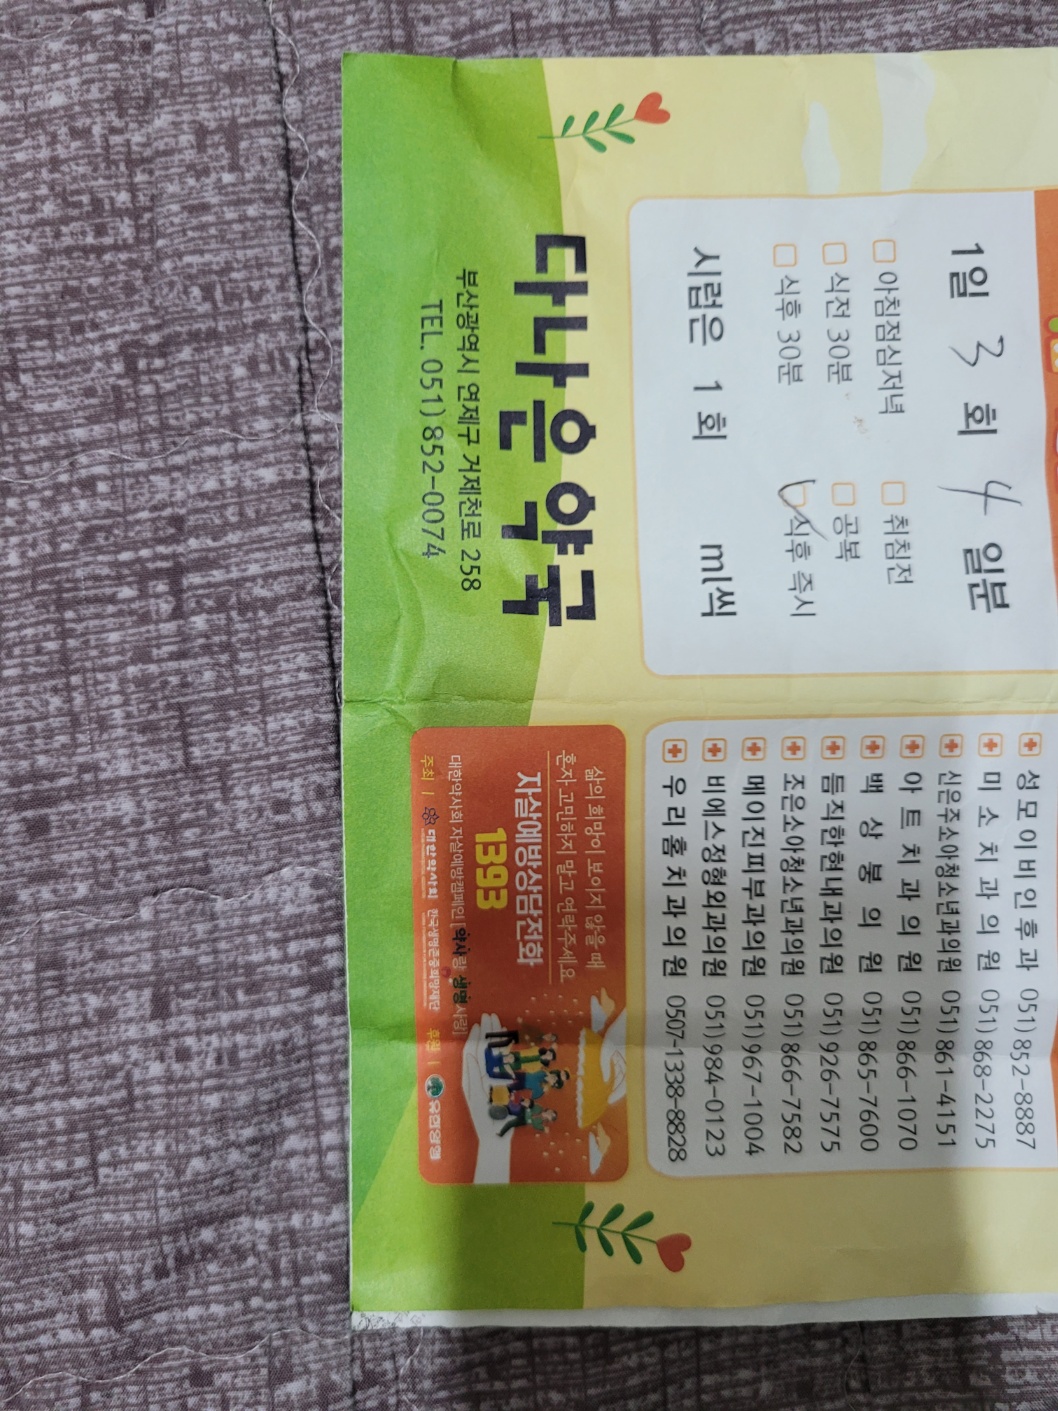 1일 3 회 4 일분
아침점심저녁 취침전
식전 30분 공복
식후 30분 식후 즉시
시럽은 1 회 ml씩
다나은약국
부산광역시 연제구 거제천로 258
TEL. 051)852-0074
성모이비인후과 051)852-8887
미소치과의원 051)868-2275
신은주소아청소년과의원 051)861-4151
아트치과의원 051)866-1070
백상봉의원 051)865-7600
듬직한현내과의원 051)926-7575
조은소아청소년과의원 051)866-7582
메이진피부과의원 051)967-1004
비에스정형외과의원 051)984-0123
우리홈치과의원 0507-1338-8828
삶의 희망이 보이지 않을 때
혼자 고민하지 말고 연락주세요
자살예방상담전화
1393
대한약사회 자살예방캠페인 | 약사랑 생명사랑
주최 | 대한약사회 한국생명존중희망재단 후원 | 유한양행